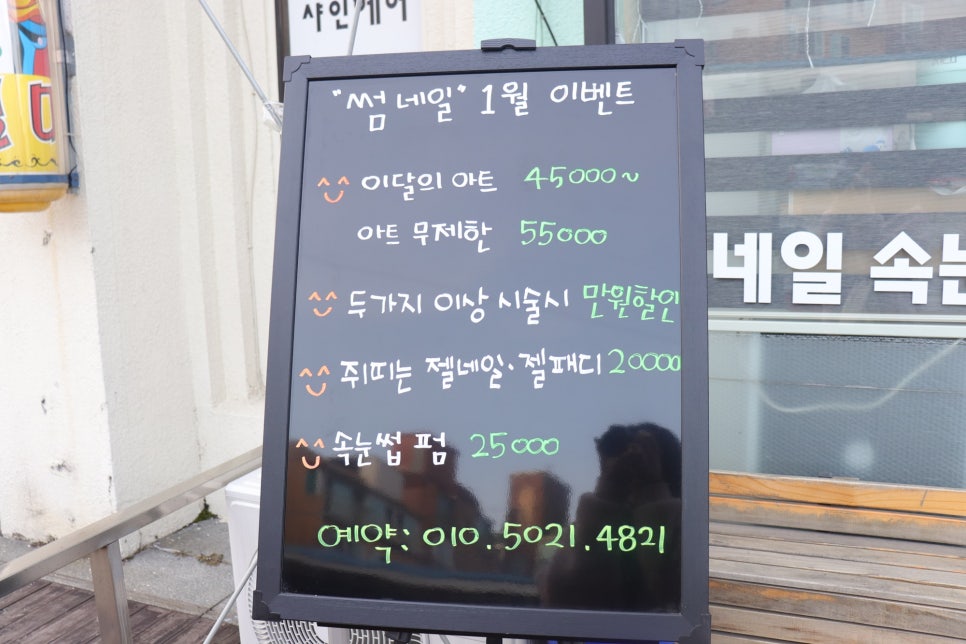 샤인케어
"썸네일" 1월 이벤트
이달의 아트 45000~
아트 무제한 55000
두가지 이상 시술시 만원할인
쥐띠는 젤네일·젤패디 20000
속눈썹 펌 25000
예약: 010.5021.4821
네일 속눈